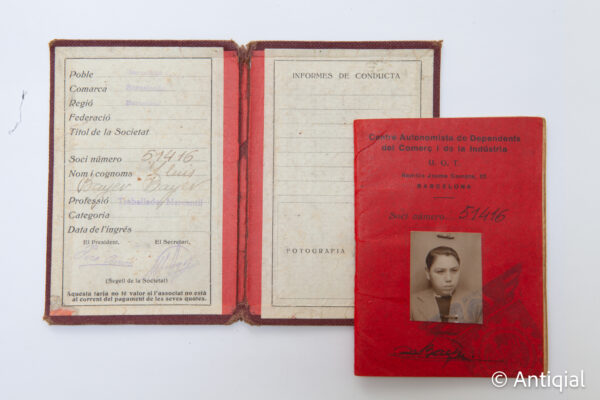 Poble Barcelona
Comarca Barcelonés
Regió Barcelona
Federació
Títol de la Societat
Soci número 51416
Nom i cognoms Luis
Bayer Bayer
Professió Treballador Mercantil
Categoria
Data de l'ingrés
El President, El Secretari,
(Segell de la Societat)
Aquesta tarja no té valor si l'associat no està
al corrent del pagament de les seves quotes.
INFORMES DE CONDUCTA
FOTOGRAFIA
Centre Autonomista de Dependents
del Comerç i de la Indústria
U. G. T.
Rambla Santa Mònica, 25
BARCELONA
Soci número 51416
Bayer
© Antiqial